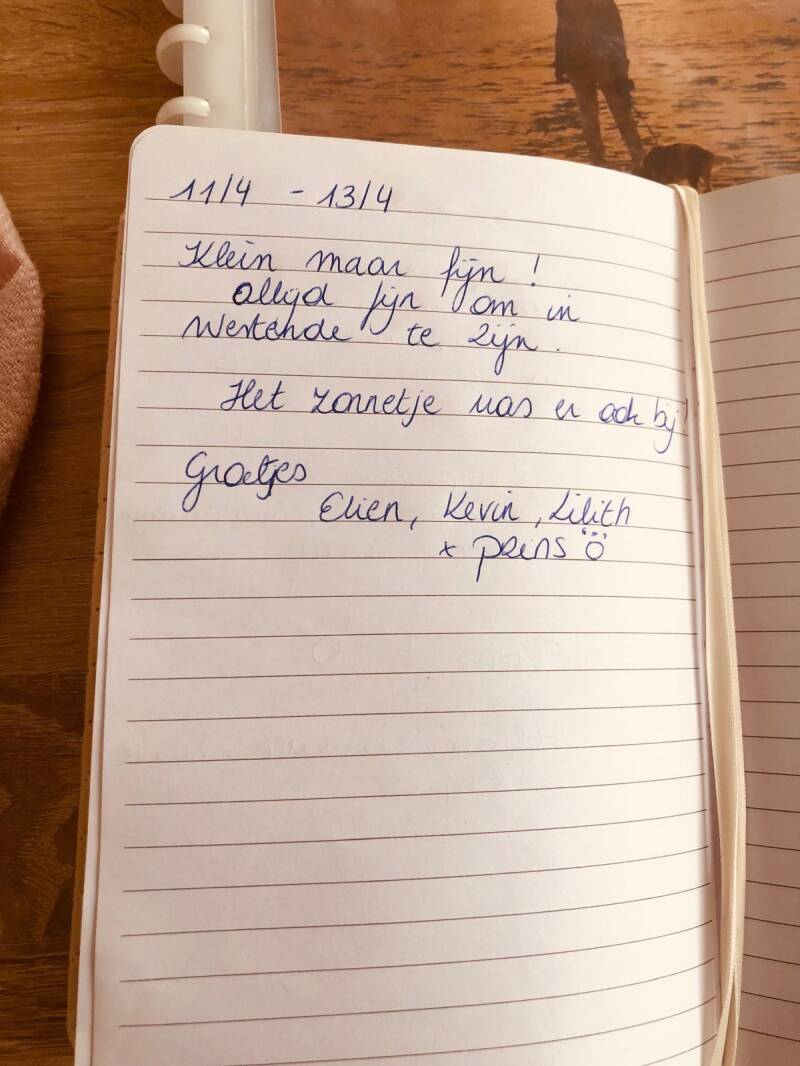 11/4 - 13/4
Klein maar fijn !
altijd fijn om in
Westende te zijn.
Het zonnetje was er ook bij!
Groetjes
Elien, Kevin, Lilith
x prins